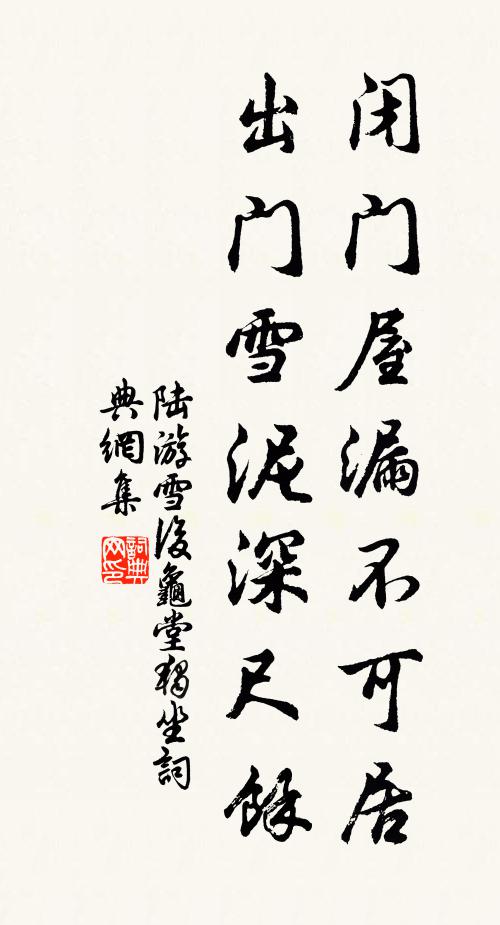 闭门屋漏不可居
出门雪泥深尺餘
陆游雪後龜堂獨坐詞
典網集
詞典
网印